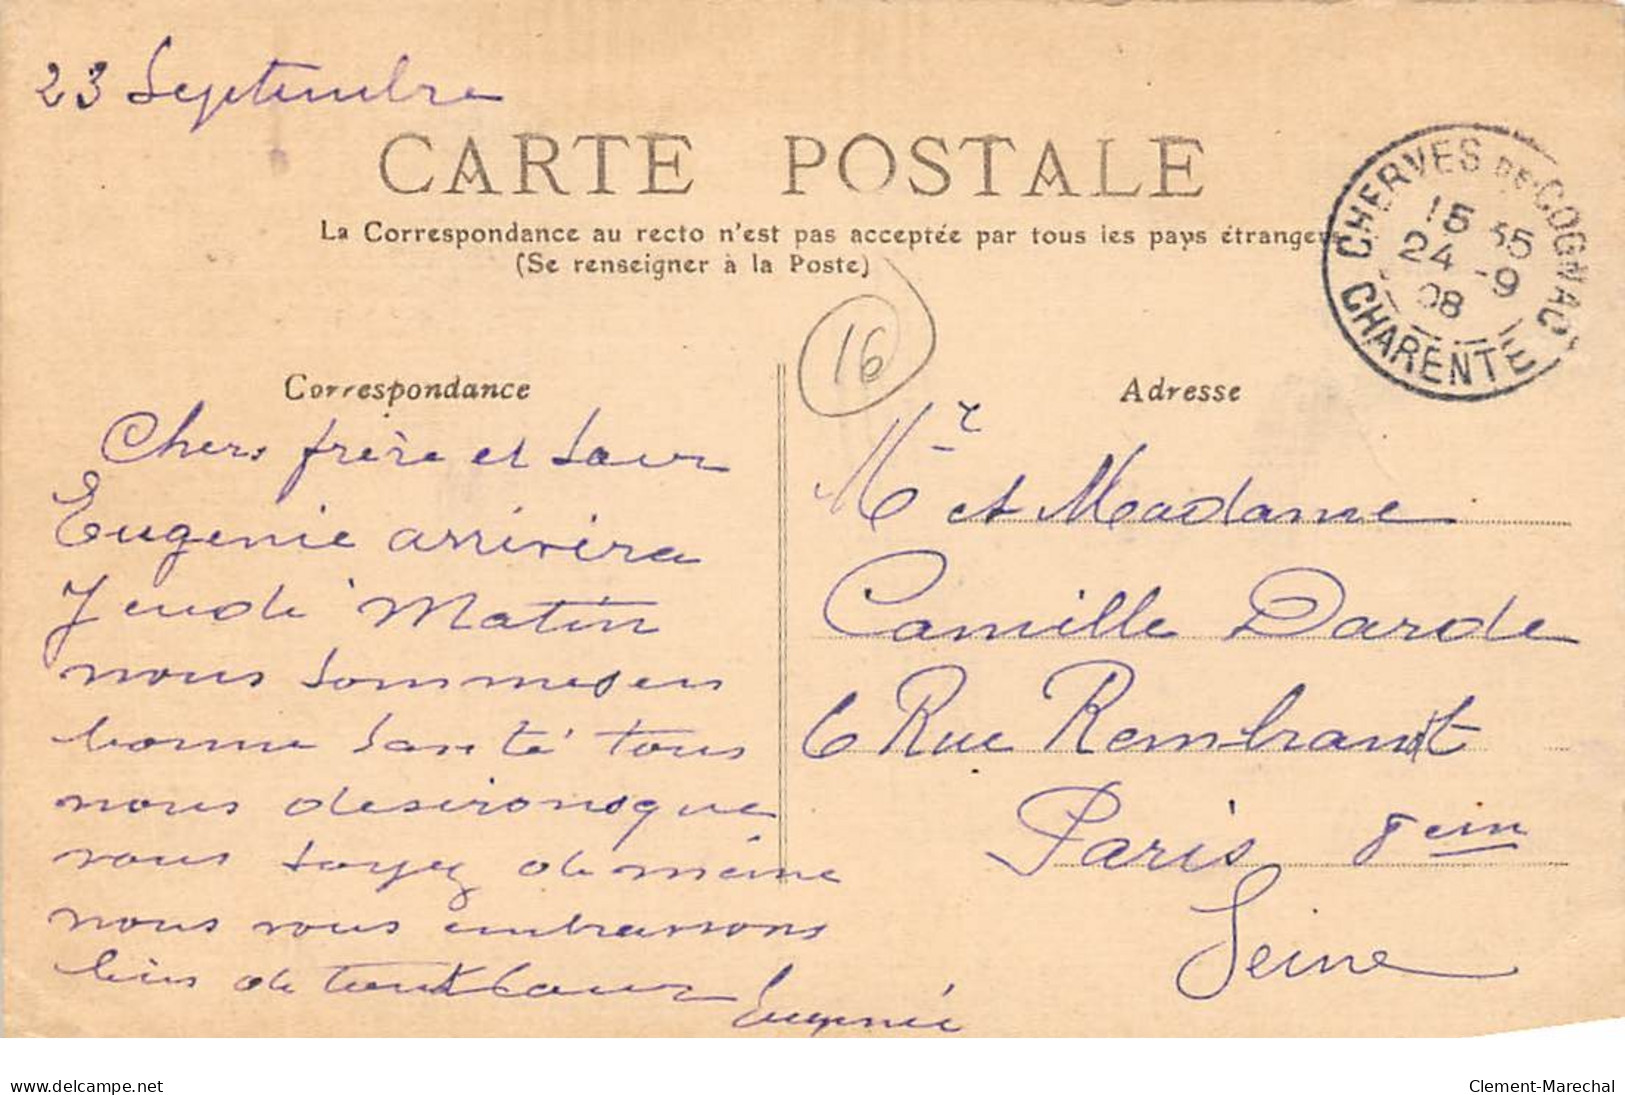 23 Septembre
CARTE POSTALE
La Correspondance au recto n'est pas acceptée par tous les pays étrangers
(Se renseigner à la Poste)
CHERVES DE COGNAC
15 35
24 -9
08
CHARENTE
16
Correspondance
Chers frère et Sœur
Eugenie arrivira
Jeudi Matin
nous sommes en
bonne Santé tous
nous desirons que
vous soyez de même
nous vous embrassons
bien de tout Cœur
Eugénie
Adresse
Mr et Madame
Camille Darde
6 Rue Rembrant
Paris 8em
Seine
delcampe.net
Clement-Marechal